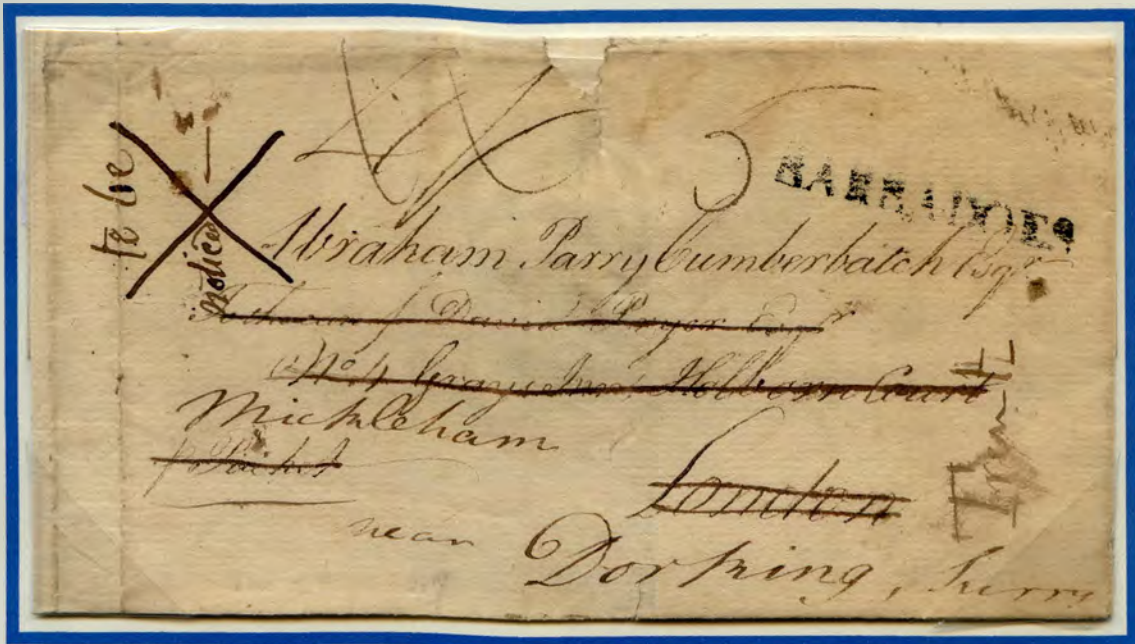 to be
noticed
BARBADOES
Abraham Parry Cumberbatch Esqr
David Pryor Esqr
No 4 Grays Inn Holborn Court
Mickleham
p Packet
London
near
Dorking, Surry